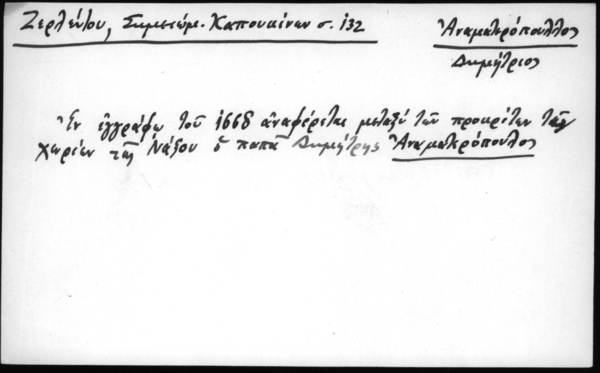 Ζερλέντου, Σημειώμ. Καπουκίνων σ. 132
Ἀναμακρόπουλλος
Δημήτριος
Ἐν ἐγγράφῳ τοῦ 1668 ἀναφέρεται μεταξὺ τῶν προκρίτων τῶν
χωρίων τῆς Νάξου ὁ παπᾶ Δημήτρης Ἀναμακρόπουλος